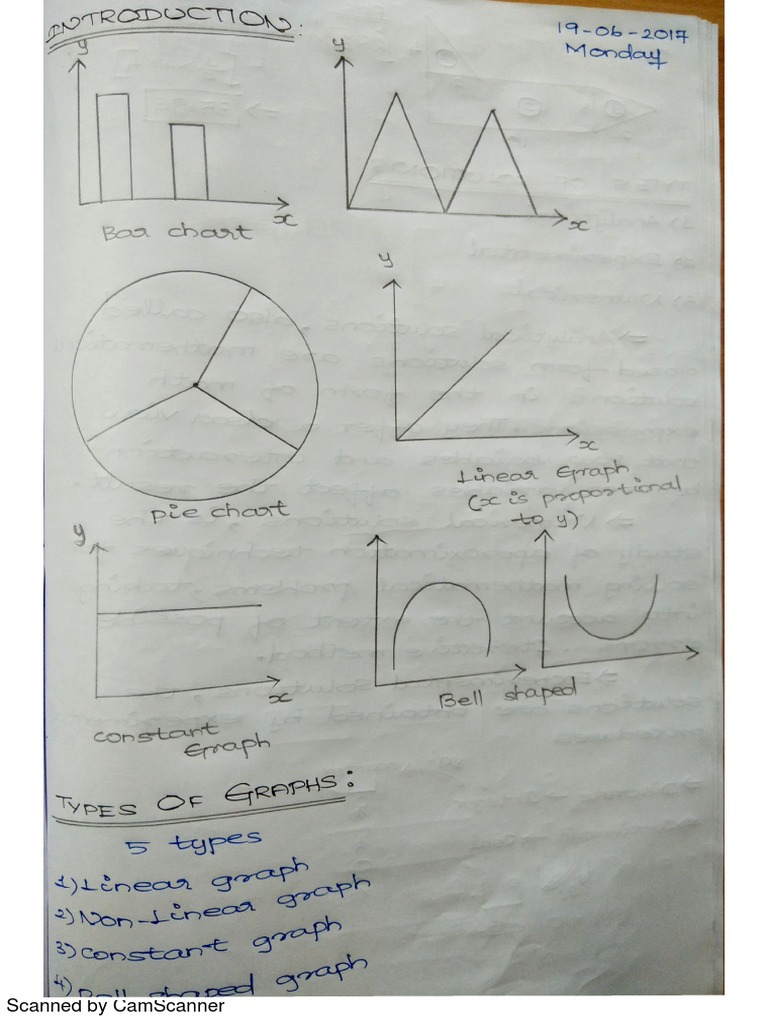 INTRODUCTION:
19-06-2017
Monday
y
y
x
x
Bar chart
y
x
Linear Graph
(x is proportional
to y)
pie chart
y
x
Bell shaped
constant
Graph
TYPES OF GRAPHS:
5 types
1) Linear graph
2) Non-Linear graph
3) constant graph
4) Bell shaped graph
Scanned by CamScanner